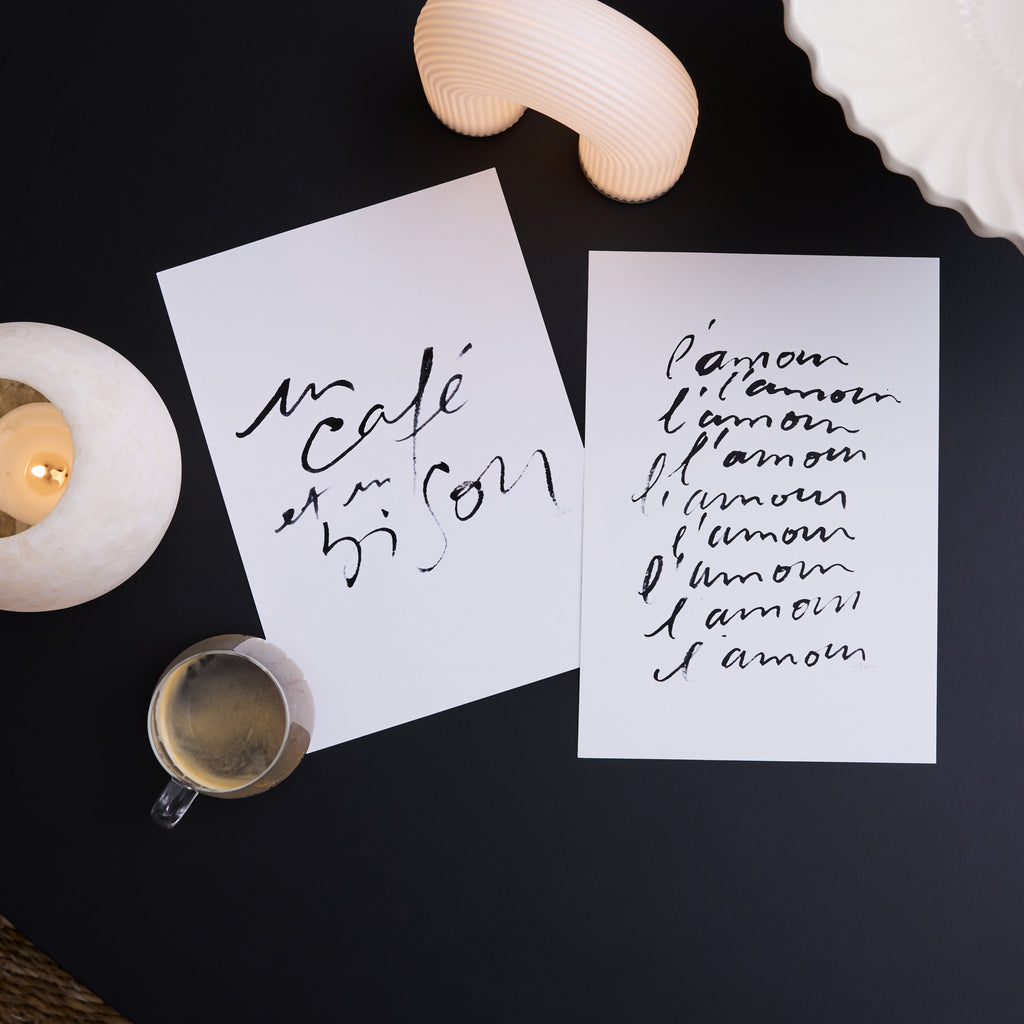 un
café
et un
bisou
l'amour
l'amour
l'amour
l'amour
l'amour
l'amour
l'amour
l'amour
l'amour